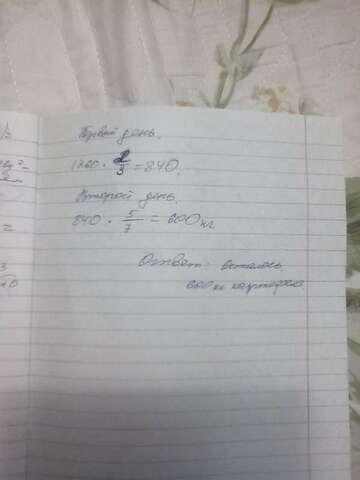 Первый день.
1260 · 2/3 = 840.
Второй день.
840 · 5/7 = 600 кг
Ответ: осталось
600 кг картофеля